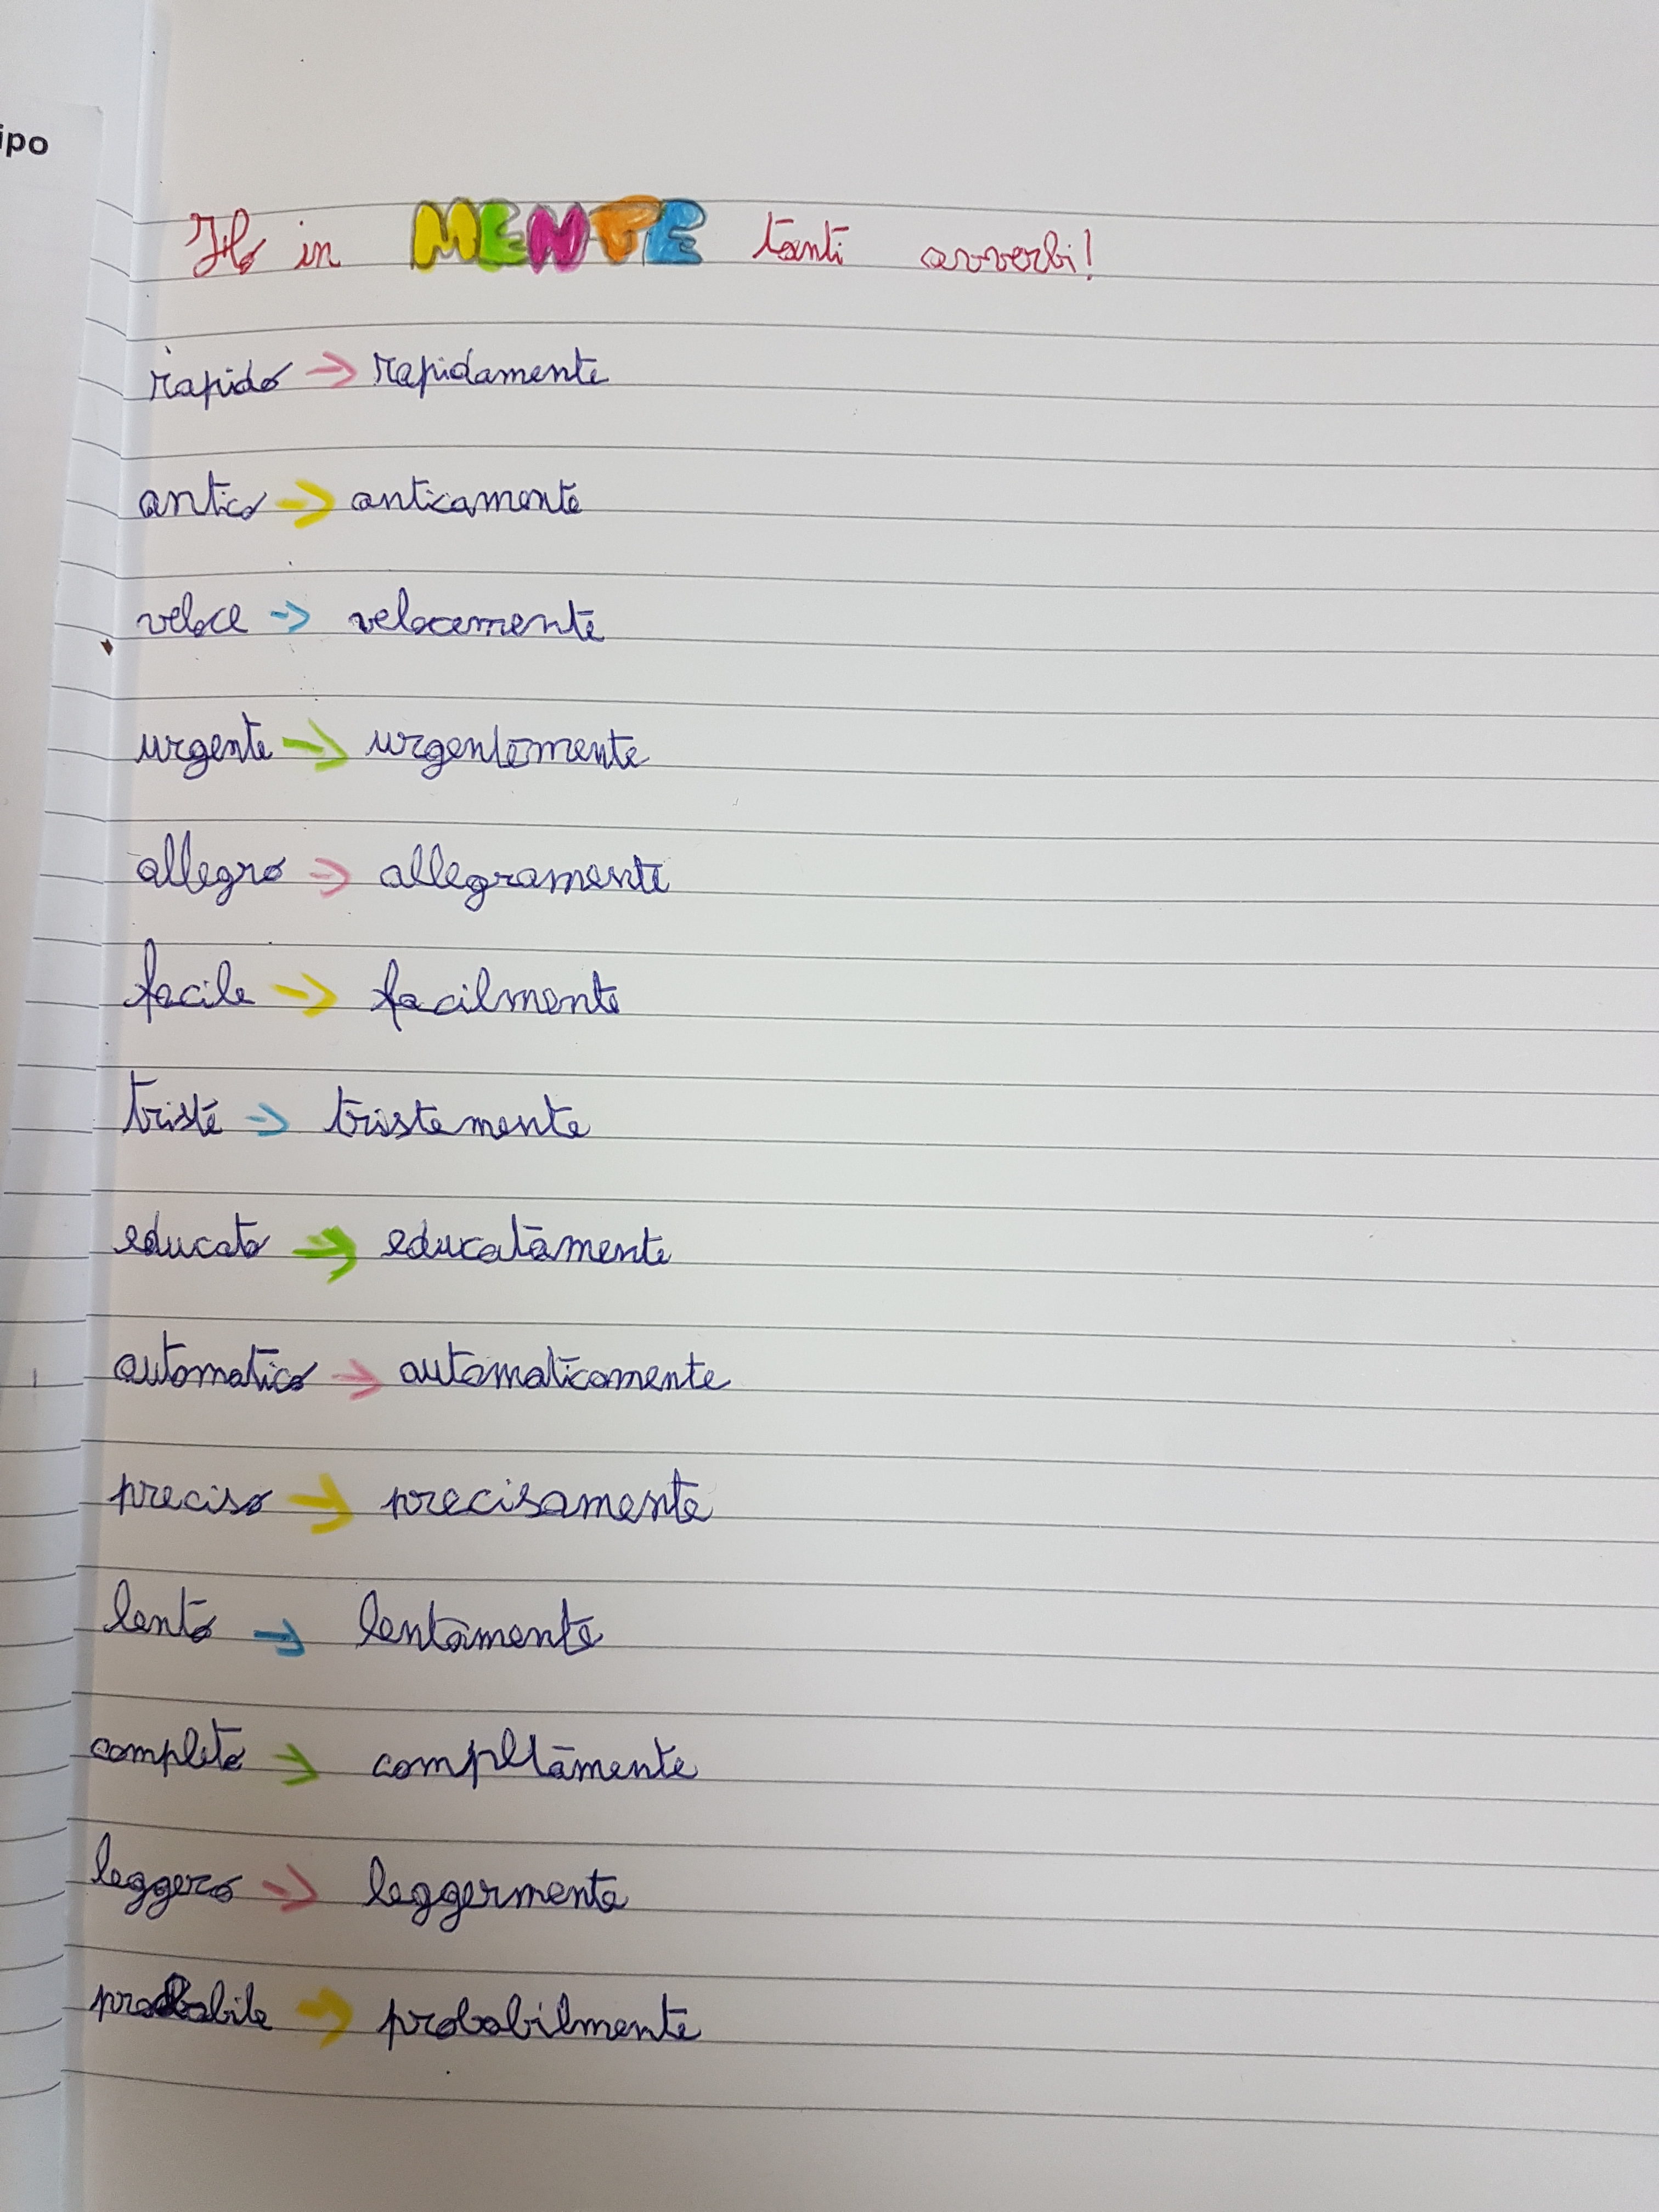 ipo
Ho in MENTE tanti avverbi!
rapido → rapidamente
antico → anticamente
veloce → velocemente
urgente → urgentemente
allegro → allegramente
facile → facilmente
triste → tristemente
educato → educatamente
automatico → automaticamente
preciso → precisamente
lento → lentamente
completo → completamente
leggero → leggermente
probabile → probabilmente